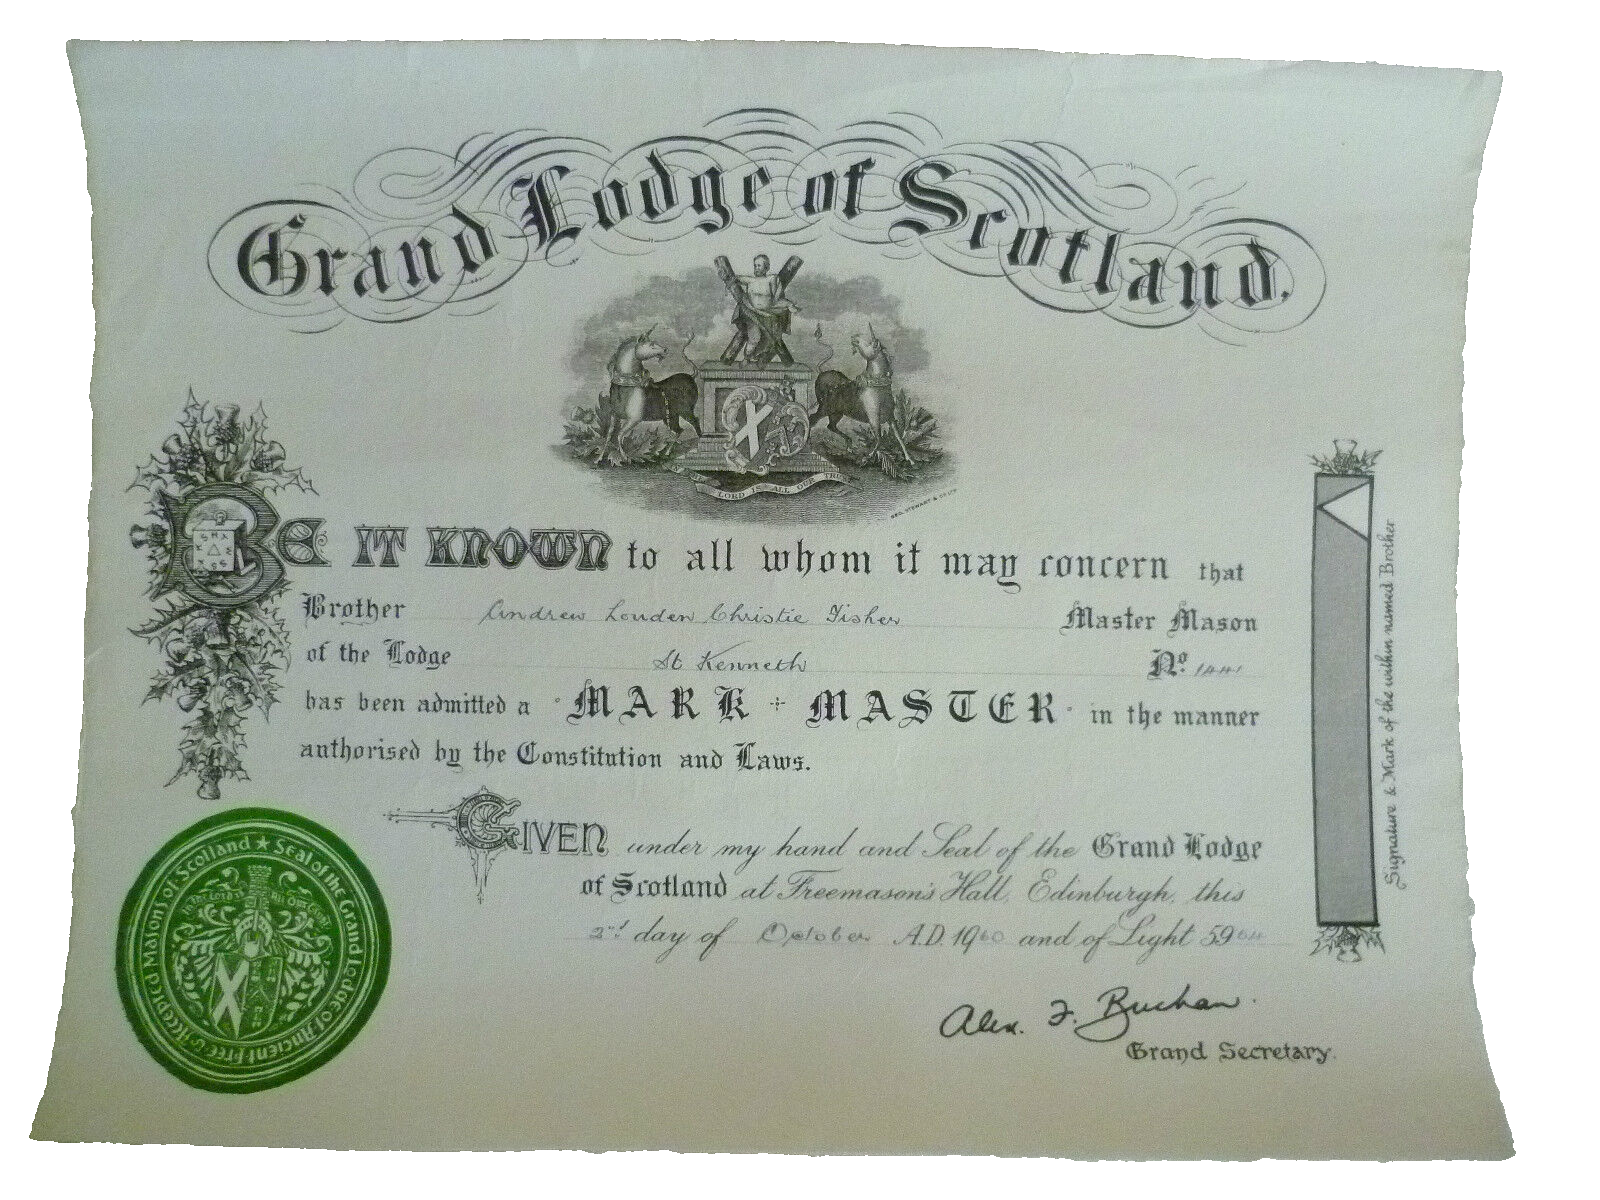 Grand Lodge of Scotland.
LORD IS ALL OUR TRUST
BE IT KNOWN to all whom it may concern that
Brother Andrew Louden Christie Fisher Master Mason
of the Lodge St Kenneth No.
has been admitted a MARK MASTER in the manner
authorised by the Constitution and Laws.
GIVEN under my hand and Seal of the Grand Lodge
of Scotland at Freemason's Hall, Edinburgh, this
2nd day of October A.D. 1960 and of Light 5964
Alex. F. Buchan.
Grand Secretary.
Signature & Mark of the within named Brother
Seal of the Grand Lodge of Ancient Free & Accepted Masons of Scotland